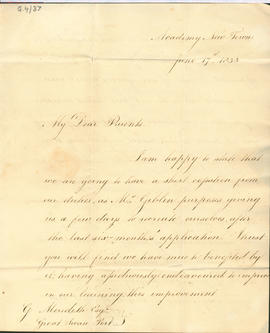 G4/37
Academy New Town
June 17th 1833
My Dear Parents
I am happy to state that
we are going to have a short cessation from
our duties, as Mr Giblin purposes giving
us a few days to recruite ourselves, after
the last six months' application. I trust
you will find we have much benefited by
it; having assiduously endeavoured to improve
in our learning this improvement
G Meredith Esqr
Great Swan Port